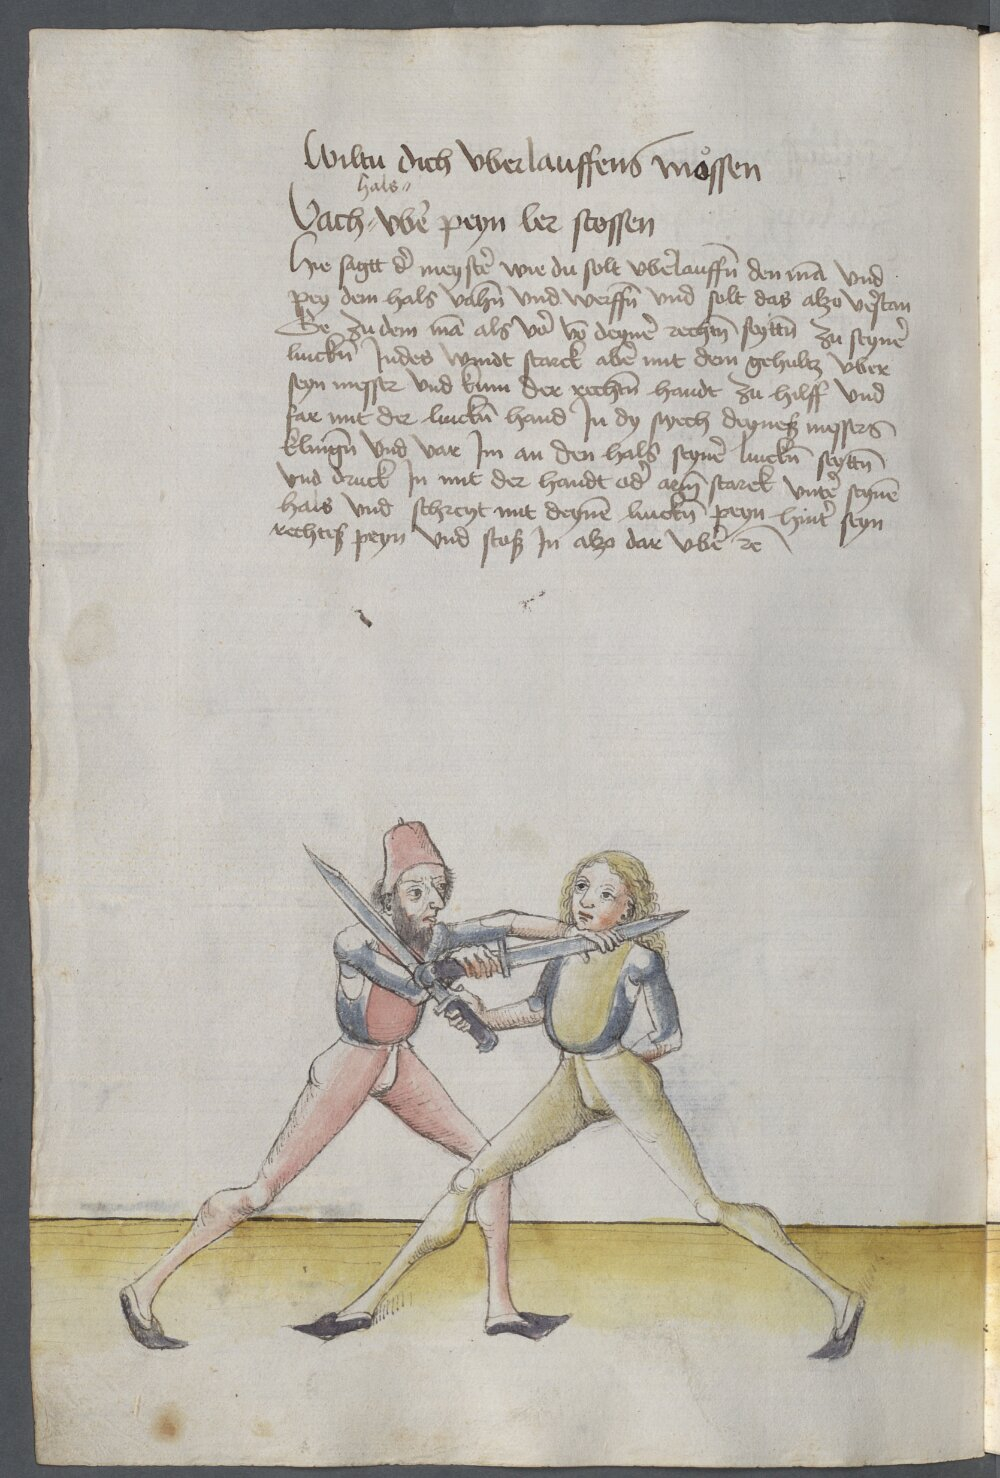 Wiltu dich vberlauffens mossen
hals
Vach vbẽ peyn ler stossen
Hie sagtt d' meystẽ wie du solt vbẽlauffñ den mã vnd
pey dem hals vahñ vnd werffñ vnd solt das alzo vẽstan
Ge zu dem mã als vor võ deynẽ rechtñ seyttñ zu seynẽ
linckñ Indes windt starck abẽ mit dem gehultz vber
seyn messer vnd kum der rechtñ handt zu hilff vnd
far mit der linckñ hand In dy sterch deyneß messers
klingñ vnd var Im an den hals seynẽ linckñ seyttñ
vnd druck In mit der handt odẽ arm starck vntẽ seynẽ
hals vnd schreyt mit deynẽ linckñ peyn hintẽ seyn
rechtiß peyn vnd stoß In alzo dar vbẽ Rẽ